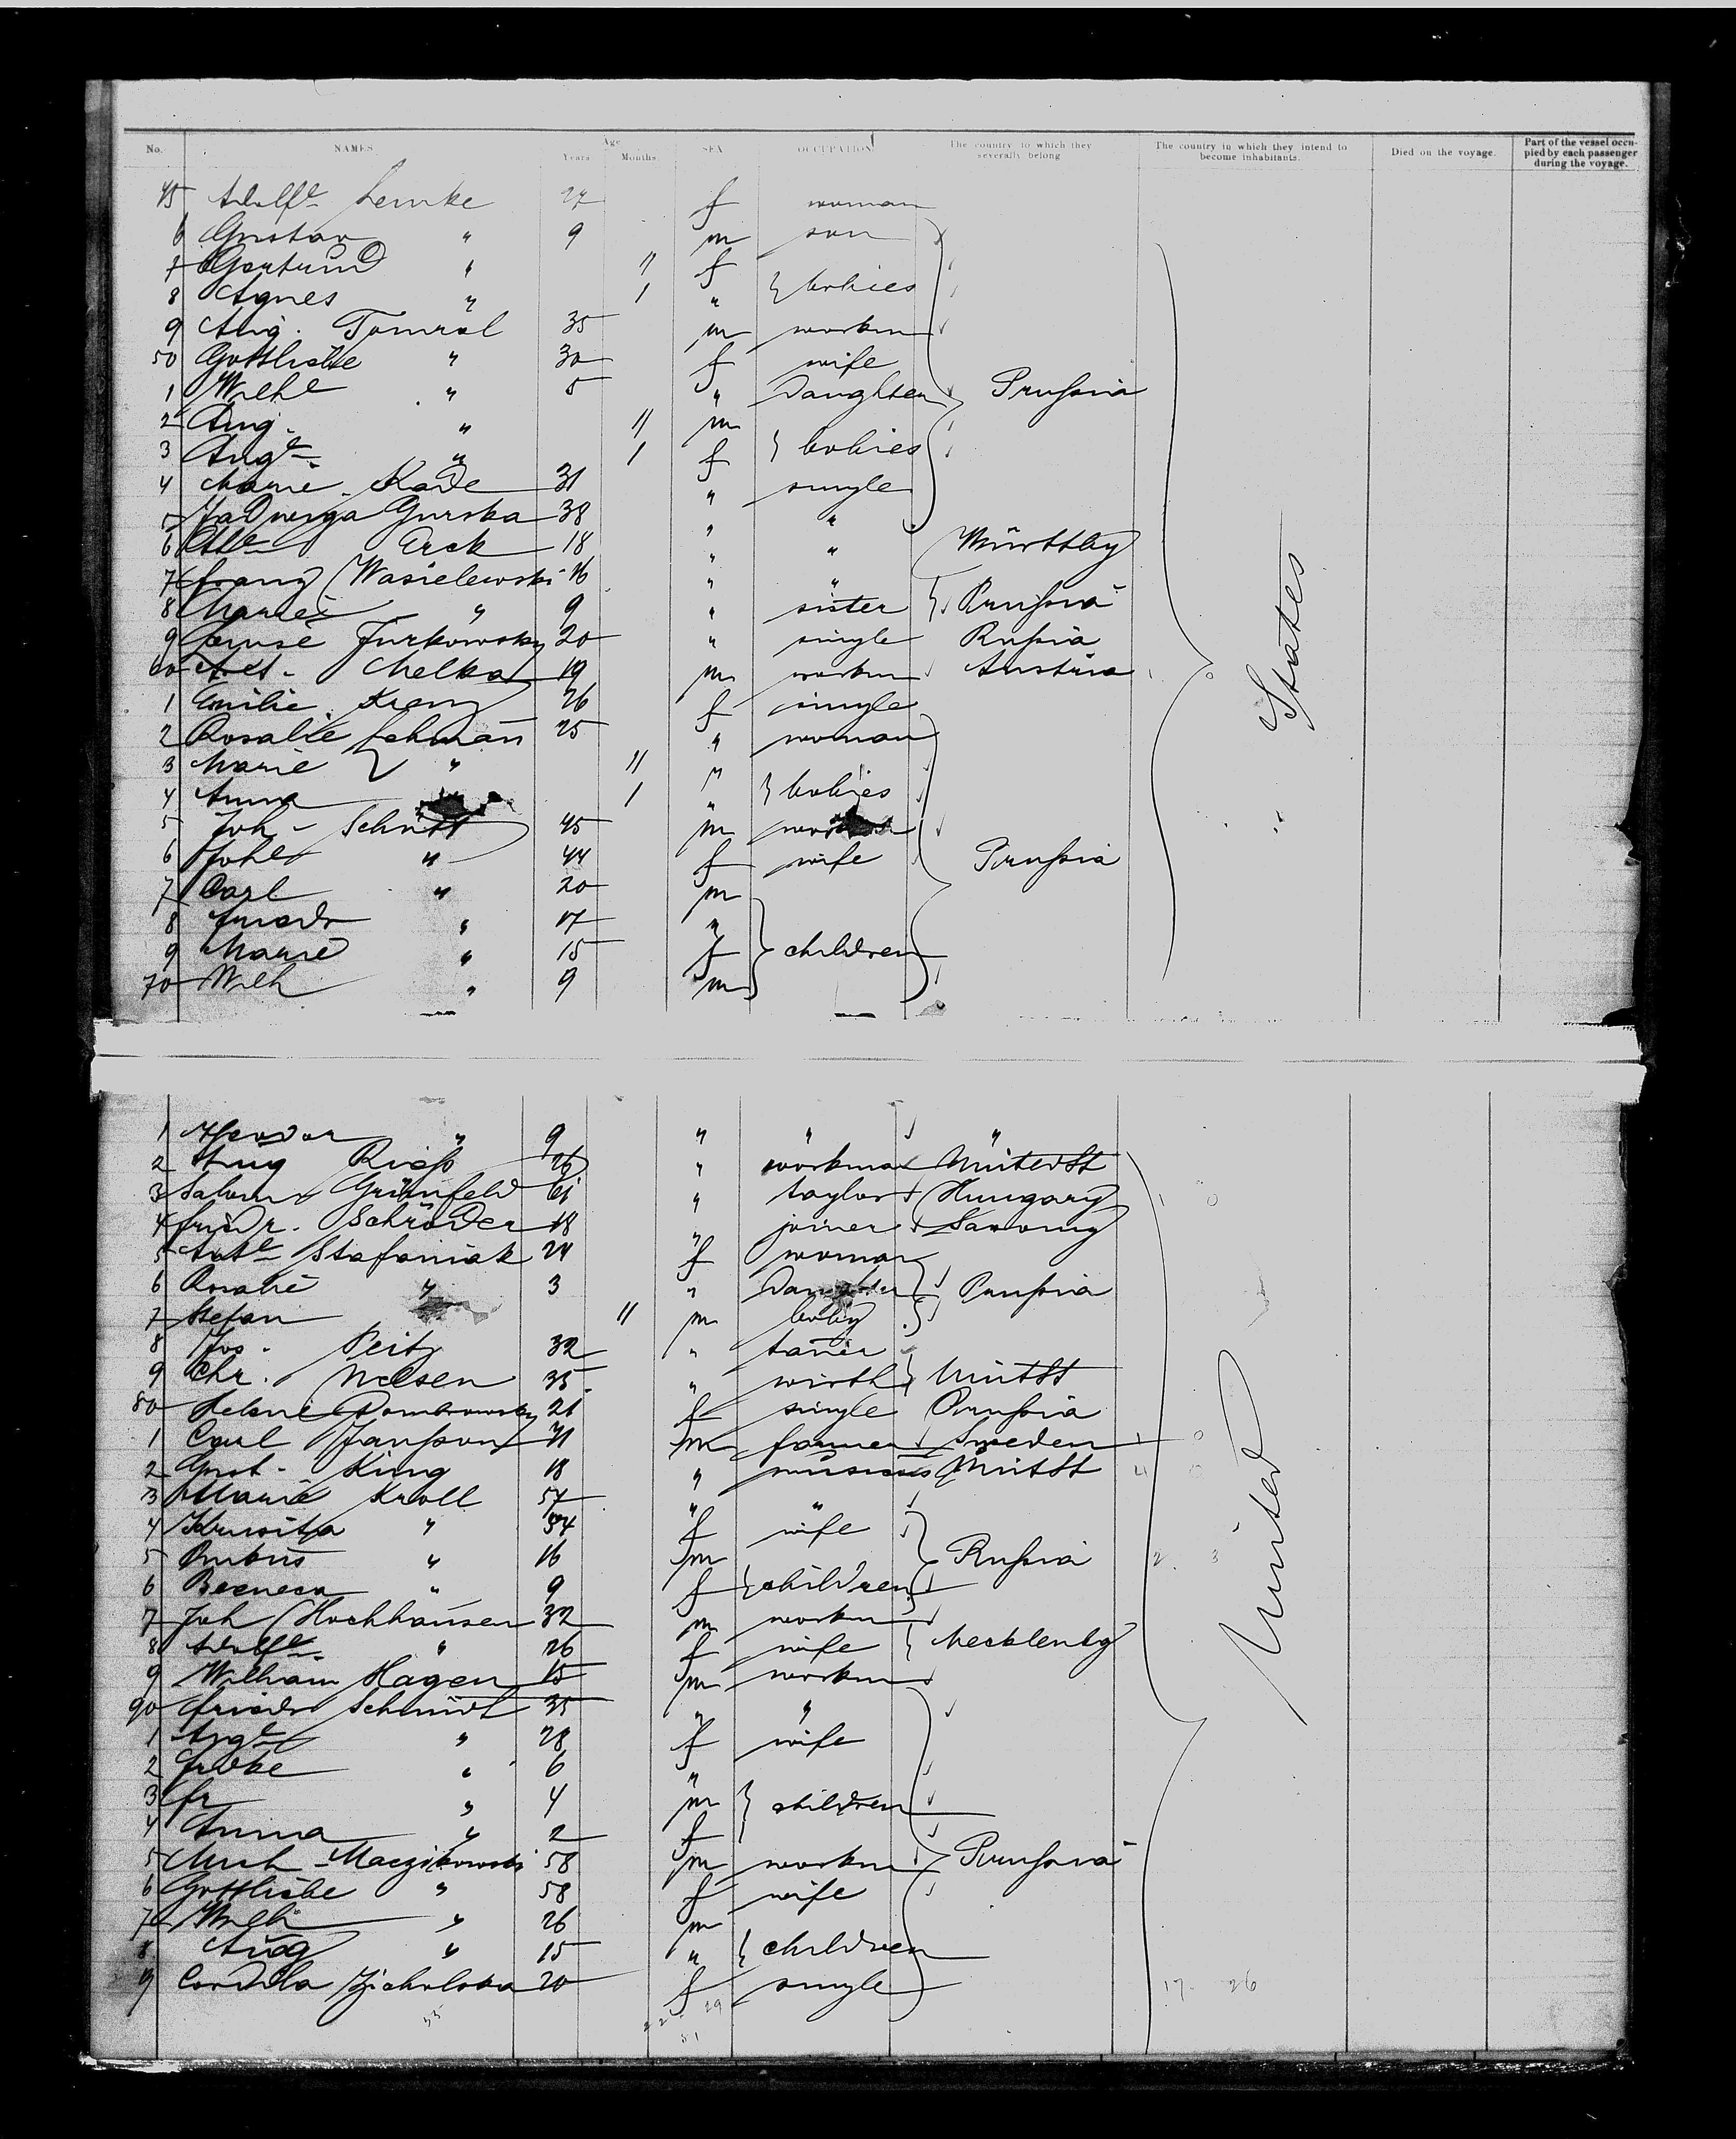 No. NAMES Age Years Months SEX OCCUPATION The country to which they severally belong The country in which they intend to become inhabitants. Died on the voyage. Part of the vessel occupied by each passenger during the voyage.
45 Adolfe Lemke 27 f woman
6 Gustav " 9 m son
7 Gertrud " 11 f
8 Agnes " 1 " babies
9 Aug. 35 m workm
50 Gottliebe " 30 f wife
1 Wilhe " 5 " Daughter Prussia
2 Aug. " 11 m
3 Auge " 1 f babies
4 Marie Kade 31 " single
5 Jadwiga Gurska 38 " "
6 Erck 18 " " Württbg
7 Franz Wasielewski 16 " "
8 Marie " 9 " sister Prussia
9 Jurkowsky 20 " single Russia
60 Chelka 19 m workm Austria
1 Emilie Krenz 26 f single
2 Rosalie Lehmañ 25 " woman
3 Marie " 11 "
4 Anna 1 " babies
5 Joh. Schritt 45 m
6 Johe " 44 f wife Prussia
7 Carl " 20 m
8 Friedr " 17 "
9 Marie " 15 f children
70 Wilh " 9 m
States
1 Theodor " 9 " " "
2 Aug Riess 26 " workman UnitedSt
3 Salom Grünfeld 61 " taylor Hungary
4 Friedr. Schröder 18 " joiner Saxony
5 Ante Stefaniak 24 f woman
6 Rosalie " 3 " Daughter Prussia
7 Stefan 11 m baby
8 Jos. Peitz 32 " tañer
9 Chr. Nielsen 35 " wirth UnitSt
80 Helene Dombrowsky 21 f single Prussia
1 Carl Jansson 41 m farmer Sweden
2 Gust. King 18 " UnitSt
3 Kroll 57 " "
4 " 54 f wife
5 " 16 m Russia
6 " 9 f children
7 Joh Hochhausen 32 m workm
8 Adolfe " 26 f wife Mecklenbg
9 William Hagen 15 m workm
90 Friedr Schmidt 35 " "
1 Auge " 28 f wife
2 " 6 "
3 Fr " 4 m children
4 Anna " 2 f
5 Mich Maczikowski 58 m workm Prussia
6 Gottliebe " 58 f wife
7 Wilh " 26 m
8 Aug " 15 " children
9 Cordula Zicholska 20 f single
United
17 26
29
51